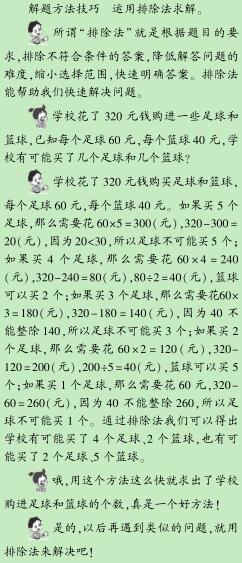 解题方法技巧 运用排除法求解。
所谓“排除法”就是根据题目的要
求,排除不符合条件的答案,降低解答问题的
难度,缩小选择范围,快速明确答案。排除法
能帮助我们快速解决问题。
学校花了 320 元钱购进一些足球和
篮球,已知每个足球 60 元,每个篮球 40 元,学
校有可能买了几个足球和几个篮球?
学校花了 320 元钱购买足球和篮球,
每个足球 60 元,每个篮球 40 元。如果买 5 个
足球,那么需要花 60×5=300(元),320-300=
20(元),因为 20<30,所以足球不可能买 5 个;
如果买 4 个足球,那么需要花 60×4=240
(元),320-240=80(元),80÷2=40(元),篮球
可以买 2 个;如果买 3 个足球,那么需要花60×
3=180(元),320-180=140(元),因为 40 不
能整除 140,所以足球不可能买 3 个;如果买 2
个足球,那么需要花 60×2=120(元),320-
120=200(元),200÷5=40(元),篮球可以买 5
个;如果买 1 个足球,那么需要花 60 元,320-
60=260(元),因为 40 不能整除 260,所以足
球不可能买 1 个。通过排除法我们可以得出
学校有可能买了 4 个足球、2 个篮球,也有可
能买了 2 个足球、5 个篮球。
哦,用这个方法这么快就求出了学校
购进足球和篮球的个数,真是一个好方法!
是的,以后再遇到类似的问题,就用
排除法来解决吧!